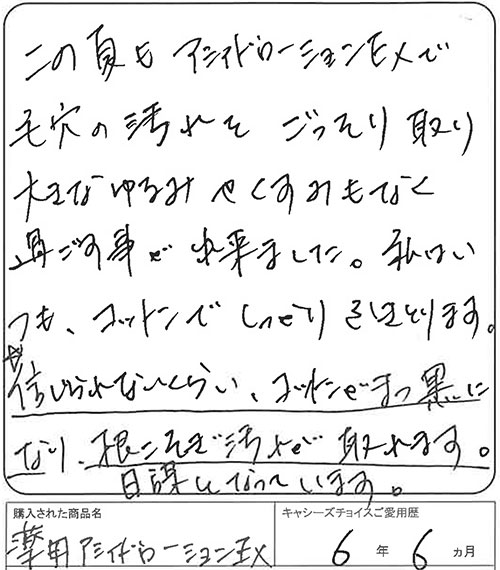 この夏も アシィドローションEXで
毛穴の汚れを ごっそり 取り
大きなゆるみ やくすみもなく
過ごす事が 出来ました。私はい
つも、コットンで しっとり ふきとります。
信じられないくらい、コットンがまっ黒に
なり、根こそぎ汚れが 取れます。
日課になっています。
購入された商品名
薬用アシィドローションEX
キャシーズチョイスご愛用歴
6 年 6 ヵ月